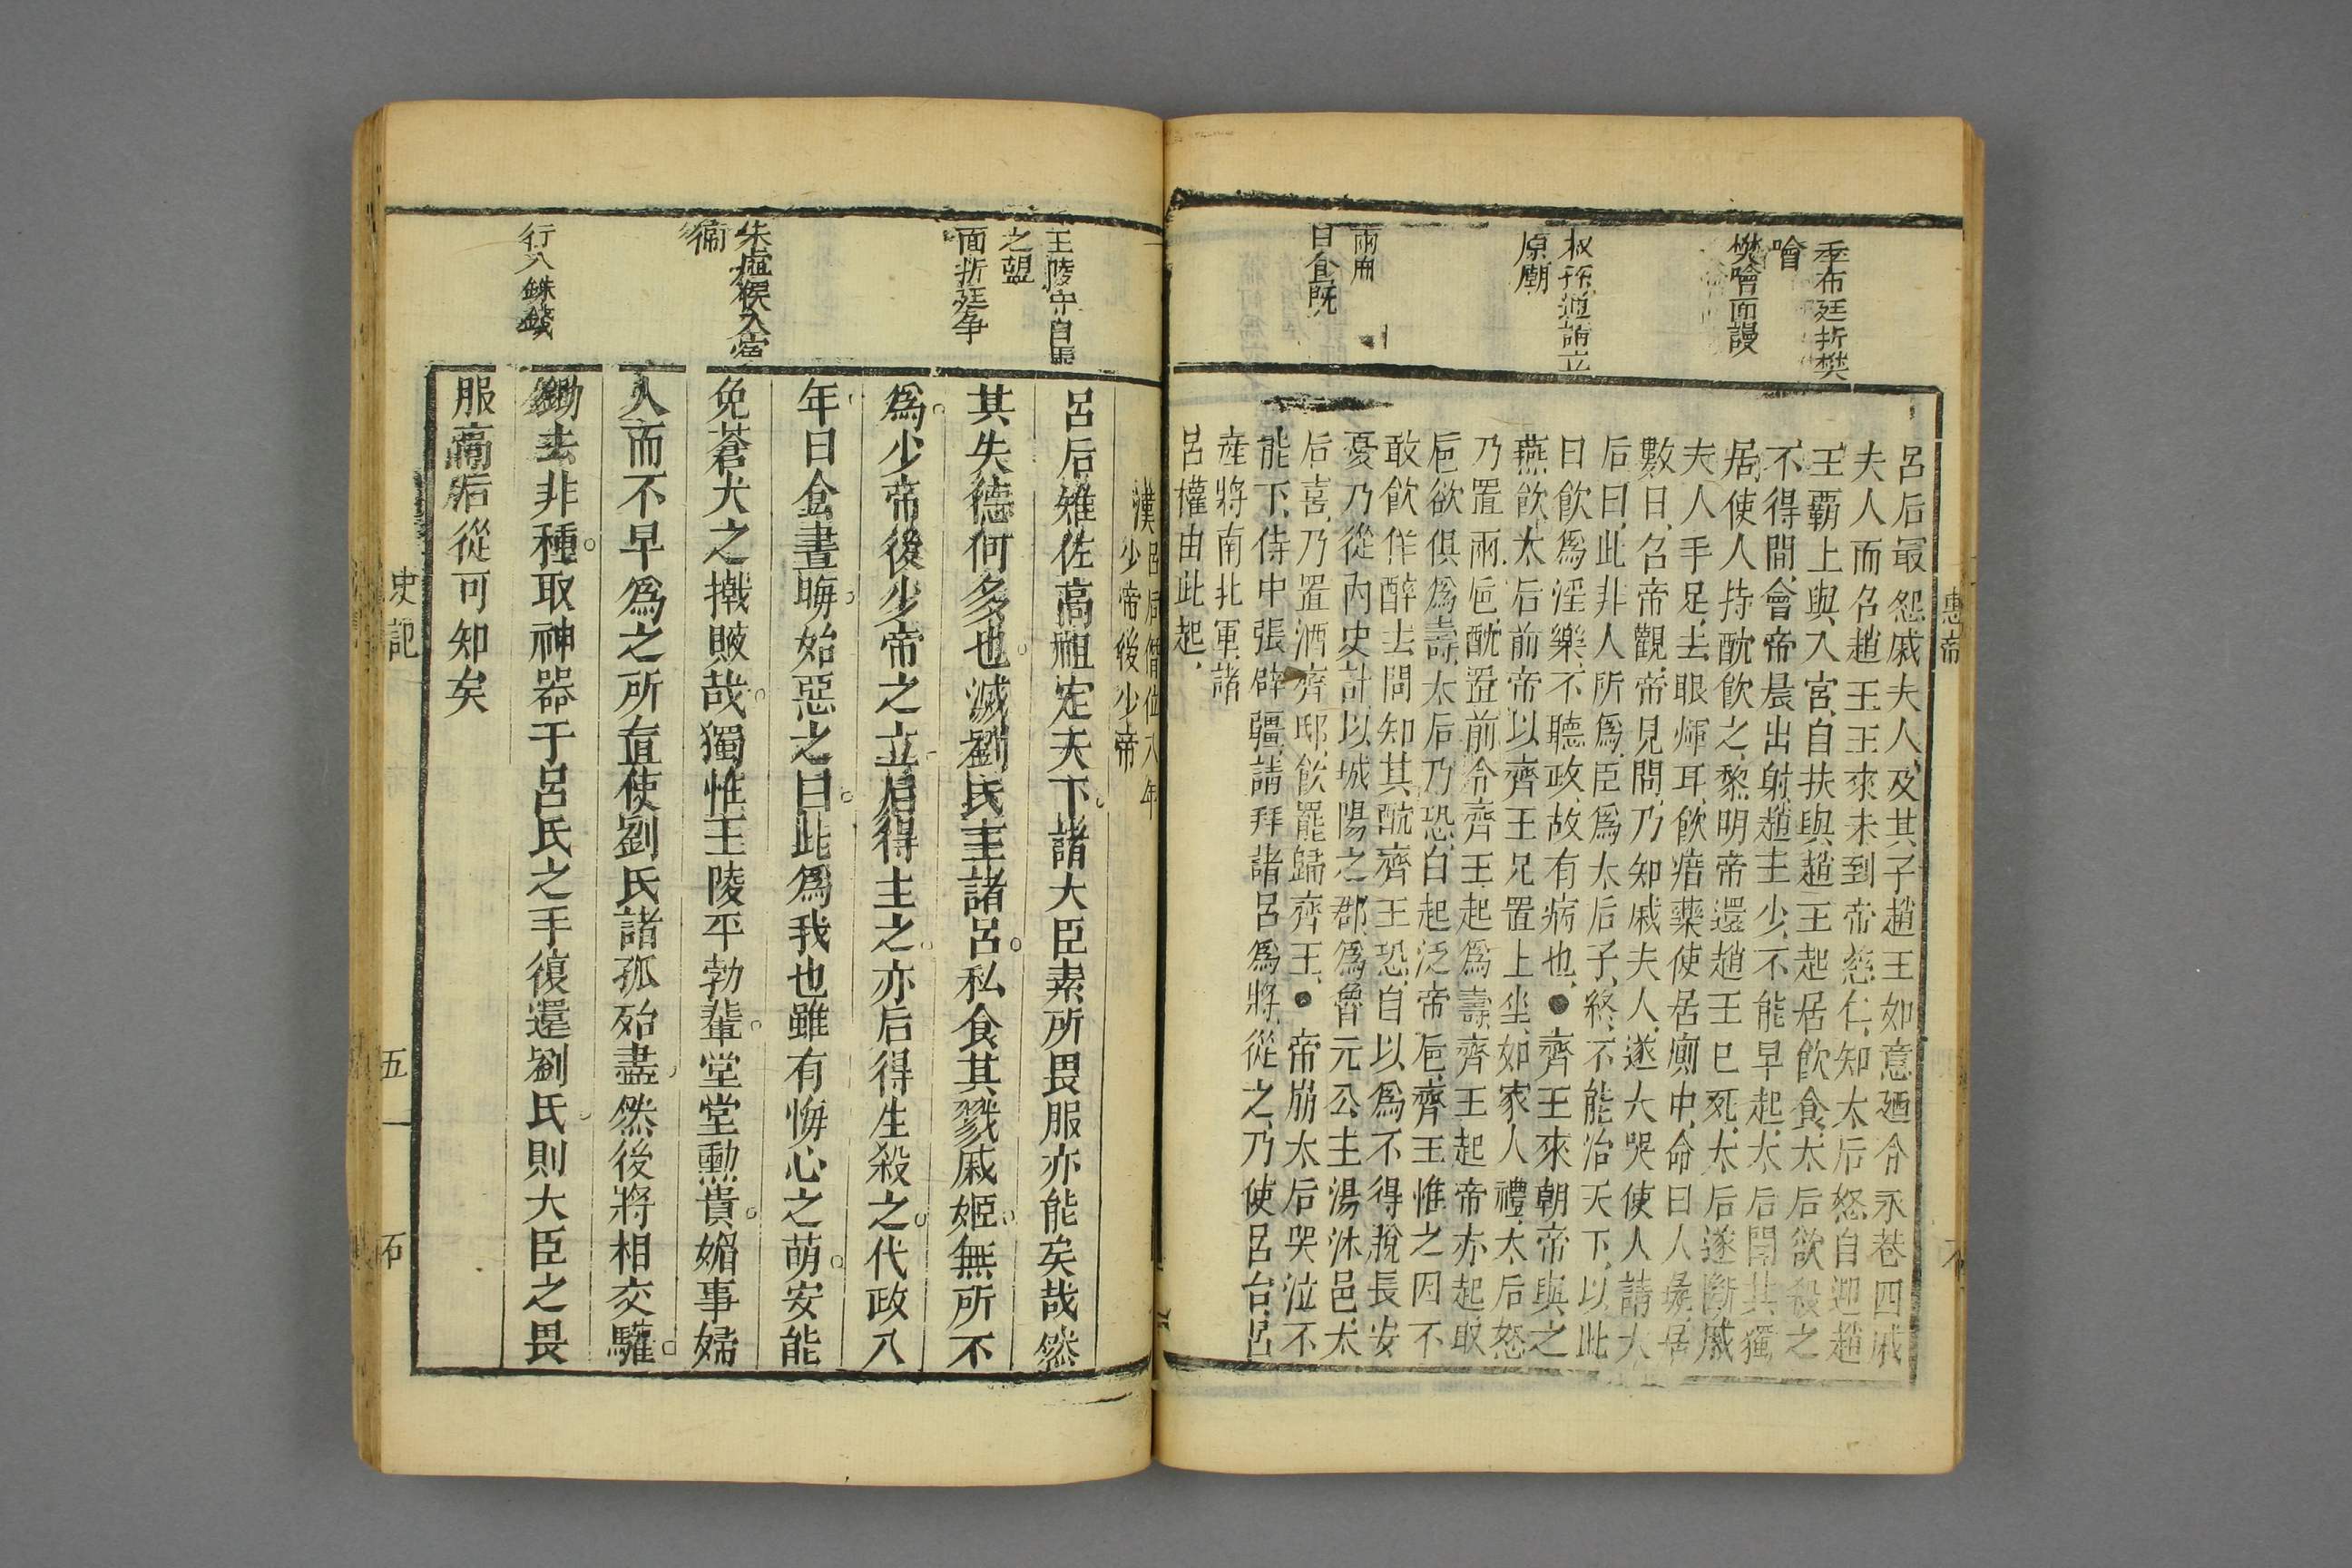 惠帝
季布廷折樊
噲
樊噲面謾
叔孫通請立
原廟
兩
日食既
呂后最怨戚夫人及其子趙王如意廼令永巷囚戚
夫人而召趙王王來未到帝慈仁知太后怒自迎趙
王覇上與入宮自扶與趙王起居飲食太后欲殺之
不得間會帝晨出射趙王少不能早起太后聞其獨
居使人持酖飲之黎明帝還趙王已死太后遂斷戚
夫人手足去眼煇耳飲瘖藥使居廁中命曰人彘居
數日召帝觀帝見問乃知戚夫人遂大哭使人請太
后曰此非人所爲臣爲太后子終不能治天下以此
日飲爲淫樂不聽政故有病也●齊王來朝帝與之
燕飲太后前帝以齊王兄置上坐如家人禮太后怒
乃置兩巵酖置前令齊王起爲壽齊王起帝亦起取
巵欲俱爲壽太后乃恐自起泛帝巵齊王恠之因不
敢飲佯醉去問知其酖齊王恐自以爲不得脫長安
憂乃從內史計以城陽之郡爲魯元公主湯沐邑太
后喜乃置酒齊邸飲罷歸齊王●帝崩太后哭泣不
能下侍中張辟疆請拜諸呂爲將從之乃使呂台呂
產將南北軍諸
呂權由此起
王陵守白馬
之盟
面折廷爭
朱虛侯入宮
衛
行八銖錢
漢呂后僭位八年
少帝後少帝
呂后雖佐高祖定天下諸大臣素所畏服亦能矣哉然
其失德何多也滅劉氏王諸呂私食其戮戚姬無所不
爲少帝後少帝之立后得主之亦后得生殺之代政八
年日食晝晦始惡之曰此爲我也雖有悔心之萌安能
免蒼犬之撠賊哉獨惟王陵平勃輩堂堂勳貴媚事婦
人而不早爲之所直使劉氏諸孤殆盡然後將相交驩
鋤去非種取神器于呂氏之手復還劉氏則大臣之畏
服高后從可知矣
史記
五
石